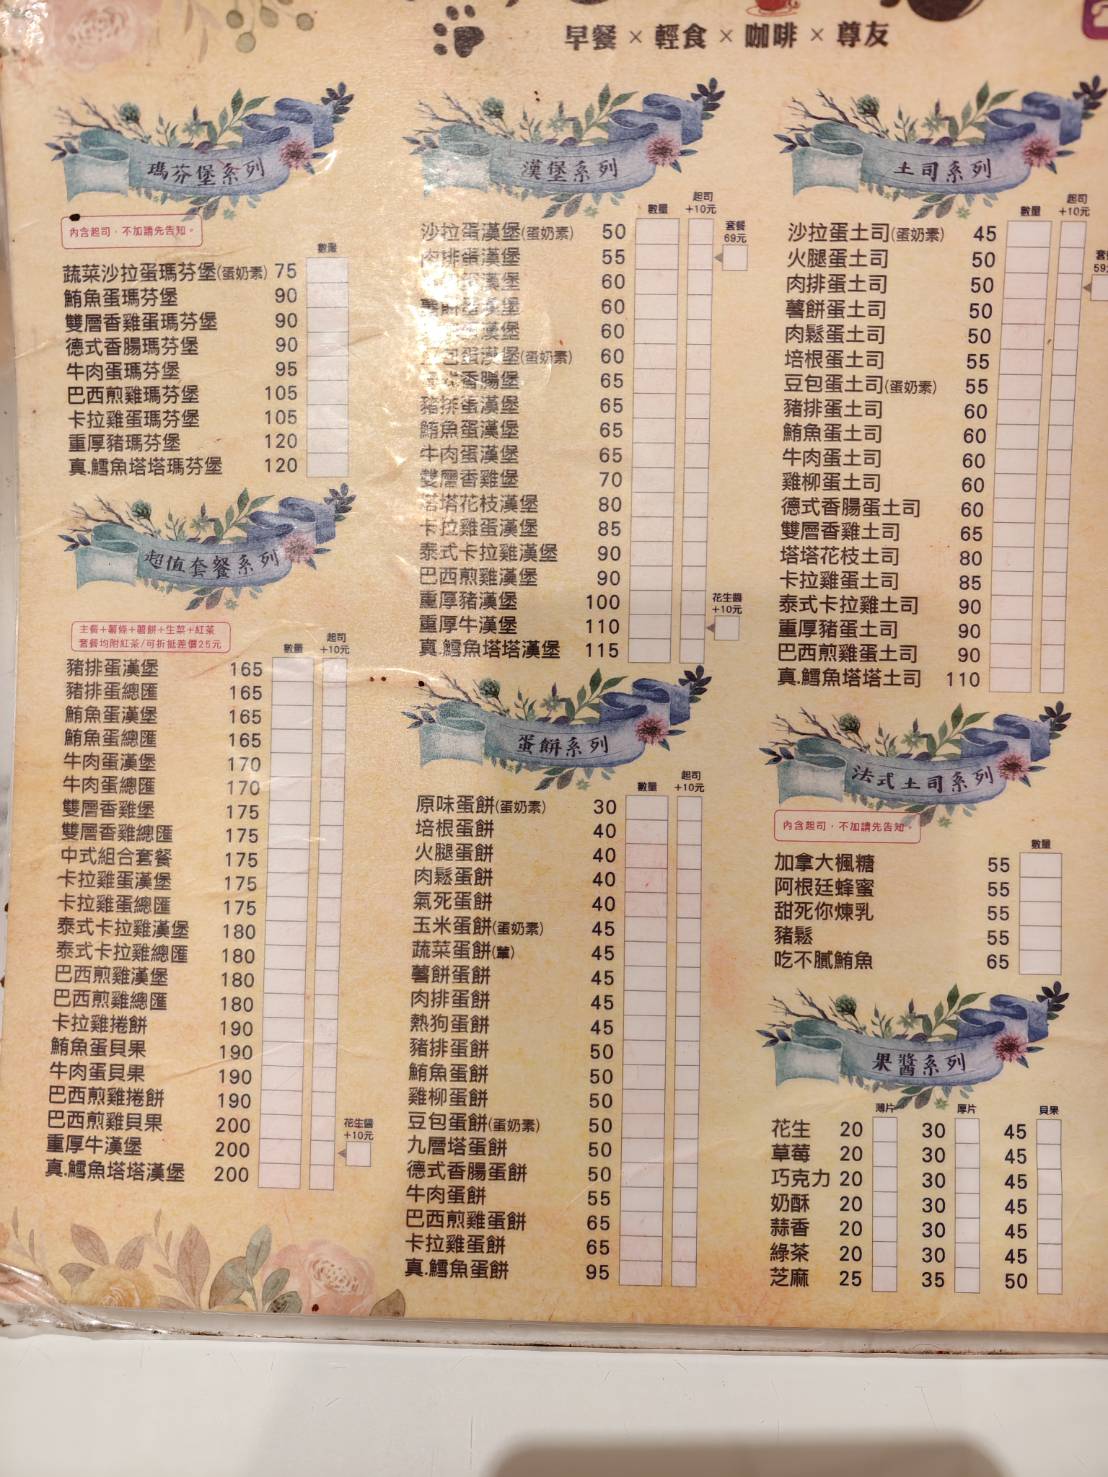 早餐 × 輕食 × 咖啡 × 尊友
瑪芬堡系列
內含起司，不加請先告知。
數量
蔬菜沙拉蛋瑪芬堡(蛋奶素) 75
鮪魚蛋瑪芬堡 90
雙層香雞蛋瑪芬堡 90
德式香腸瑪芬堡 90
牛肉蛋瑪芬堡 95
巴西煎雞瑪芬堡 105
卡拉雞蛋瑪芬堡 105
重厚豬瑪芬堡 120
真.鱈魚塔塔瑪芬堡 120
超值套餐系列
主餐+薯條+薯餅+生菜+紅茶
套餐均附紅茶/可折抵差價25元
數量
起司
+10元
豬排蛋漢堡 165
豬排蛋總匯 165
鮪魚蛋漢堡 165
鮪魚蛋總匯 165
牛肉蛋漢堡 170
牛肉蛋總匯 170
雙層香雞堡 175
雙層香雞總匯 175
中式組合套餐 175
卡拉雞蛋漢堡 175
卡拉雞蛋總匯 175
泰式卡拉雞漢堡 180
泰式卡拉雞總匯 180
巴西煎雞漢堡 180
巴西煎雞總匯 180
卡拉雞捲餅 190
鮪魚蛋貝果 190
牛肉蛋貝果 190
巴西煎雞捲餅 190
巴西煎雞貝果 200
重厚牛漢堡 200
真.鱈魚塔塔漢堡 200
花生醬
+10元
漢堡系列
數量
起司
+10元
套餐
69元
沙拉蛋漢堡(蛋奶素) 50
肉排蛋漢堡 55
漢堡 60
薯餅蛋漢堡 60
蛋漢堡 60
豆包蛋漢堡(蛋奶素) 60
香腸堡 65
豬排蛋漢堡 65
鮪魚蛋漢堡 65
牛肉蛋漢堡 65
雙層香雞堡 70
塔塔花枝漢堡 80
卡拉雞蛋漢堡 85
泰式卡拉雞漢堡 90
巴西煎雞漢堡 90
重厚豬漢堡 100
重厚牛漢堡 110
真.鱈魚塔塔漢堡 115
花生醬
+10元
蛋餅系列
數量
起司
+10元
原味蛋餅(蛋奶素) 30
培根蛋餅 40
火腿蛋餅 40
肉鬆蛋餅 40
氣死蛋餅 40
玉米蛋餅(蛋奶素) 45
蔬菜蛋餅(葷) 45
薯餅蛋餅 45
肉排蛋餅 45
熱狗蛋餅 45
豬排蛋餅 50
鮪魚蛋餅 50
雞柳蛋餅 50
豆包蛋餅(蛋奶素) 50
九層塔蛋餅 50
德式香腸蛋餅 50
牛肉蛋餅 55
巴西煎雞蛋餅 65
卡拉雞蛋餅 65
真.鱈魚蛋餅 95
土司系列
數量
起司
+10元
沙拉蛋土司(蛋奶素) 45
火腿蛋土司 50
肉排蛋土司 50
薯餅蛋土司 50
肉鬆蛋土司 50
培根蛋土司 55
豆包蛋土司(蛋奶素) 55
豬排蛋土司 60
鮪魚蛋土司 60
牛肉蛋土司 60
雞柳蛋土司 60
德式香腸蛋土司 60
雙層香雞土司 65
塔塔花枝土司 80
卡拉雞蛋土司 85
泰式卡拉雞土司 90
重厚豬蛋土司 90
巴西煎雞蛋土司 90
真.鱈魚塔塔土司 110
法式土司系列
內含起司，不加請先告知。
數量
加拿大楓糖 55
阿根廷蜂蜜 55
甜死你煉乳 55
豬鬆 55
吃不膩鮪魚 65
果醬系列
薄片 厚片 貝果
花生 20 30 45
草莓 20 30 45
巧克力 20 30 45
奶酥 20 30 45
蒜香 20 30 45
綠茶 20 30 45
芝麻 25 35 50